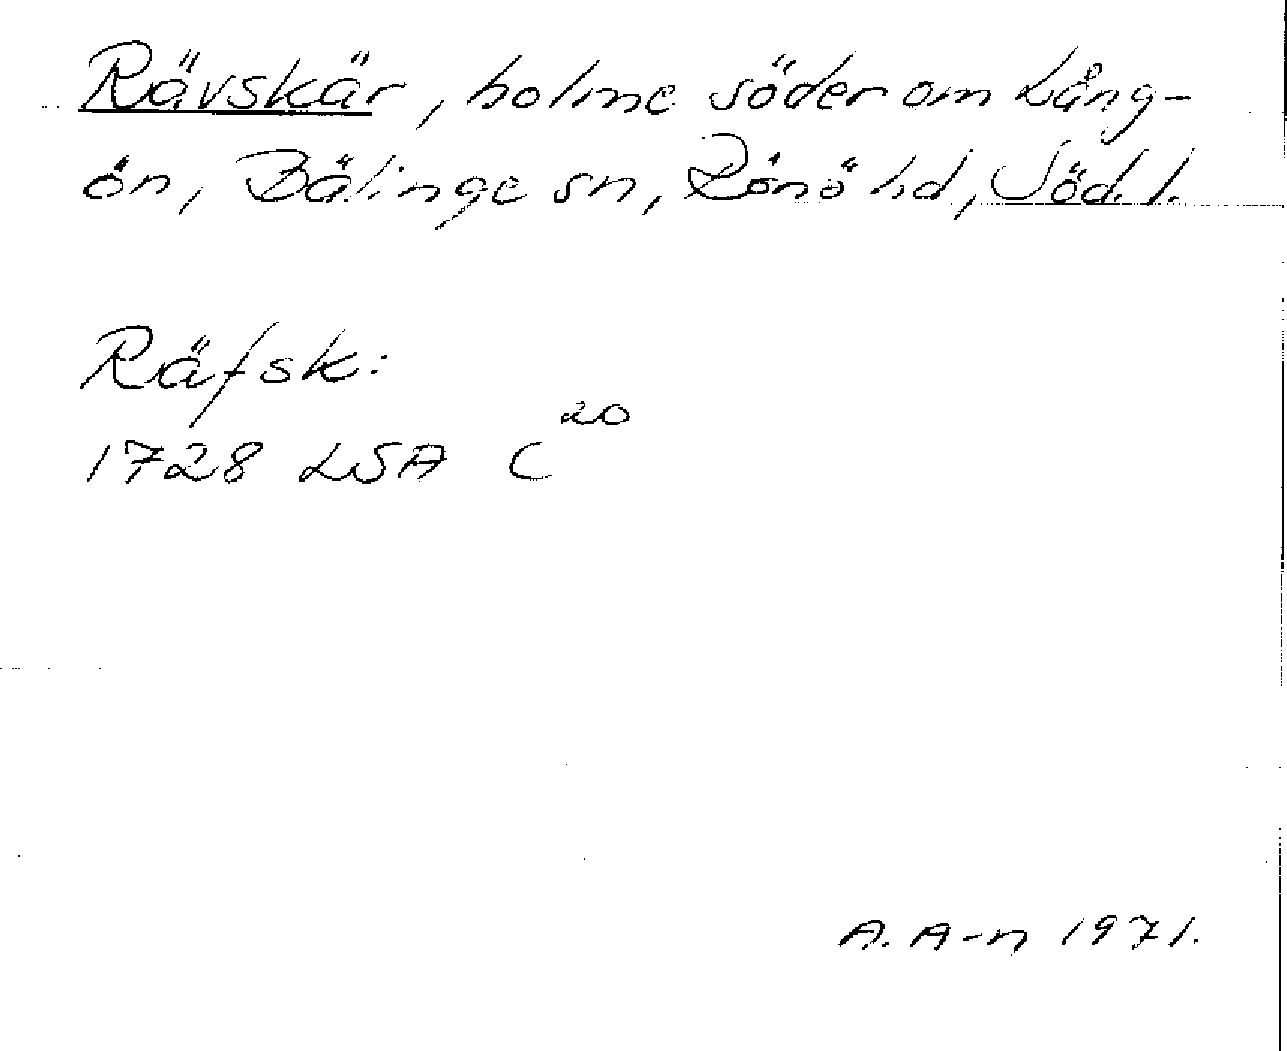 Rävskär, holme söder om Lång-
ön, Bälinge sn, Rönö hd, Södl.
Räfsk:
1728 LSA C20
A. A-n 1971.